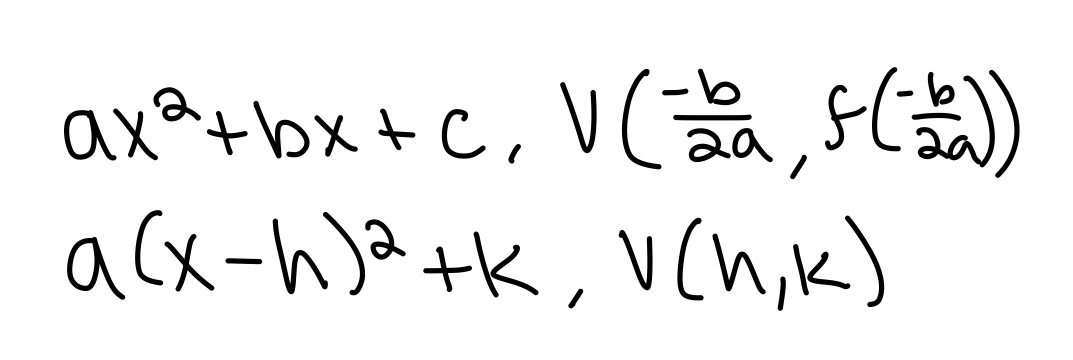 ax²+bx+c, V(-b/2a, f(-b/2a))
a(x-h)²+k, V(h,k)